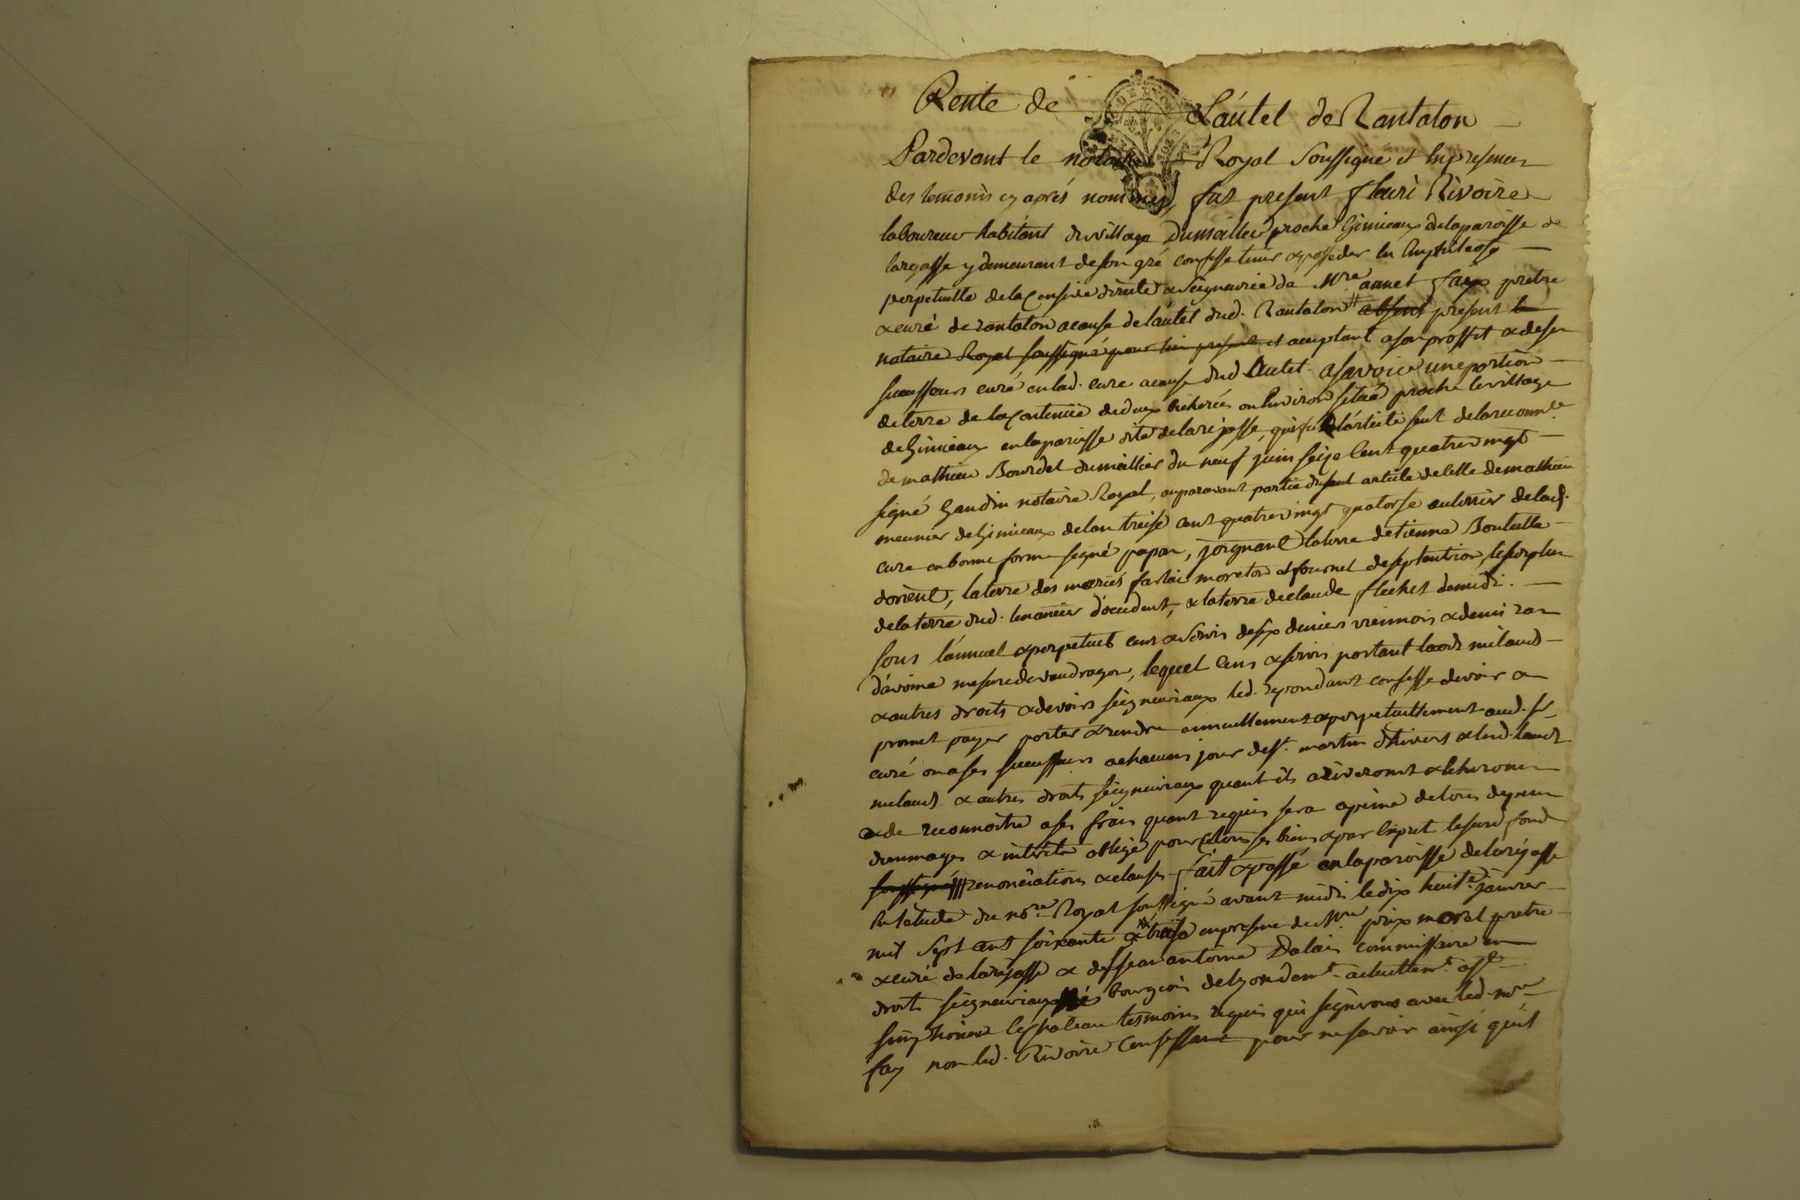 Rente de L'áutel de Rantalon
Pardevant le notaire Royal soussigné et En presence
des temoins cy aprés nommés, fut present fleuri Rivoire
laboureur habitant du village Dumallier proche Gimieaux delaparoisse de
larajasse y demeurant de son gré confesse tenir & posseder En Emphiteose
perpetuelle de la Censive directe & Seigneurie de Mre annet fay prêtre
& curé de rantalon acause de láutel dud. Rantalon absent present le
notaire Royal soussigné pour lui present et acceptant a son proffit & de ses
successeurs curé en lad. cure acause dud Autel. asavoir une portion
de terre de la Contenüe de deux bicherées ou Environ sitüé proche le village
de Gimieaux en la paroisse dite de larajasse, qui fut l'article sept de la reconnce
de mathieu Bourdet dumallier du neuf juin seize Cent quatrevingt
signé Gaudin notaire Royal, auparavant partie du sept article de Celle de mathieu
meunier de Gimieaux de lan treise cent quatrevingt quatorse au terrier de lad.
cure en bonne forme signé papon, joignant la terre detienne Bouteille
dorient, la terre des mariés moreton & fournel de septentrion, le surplus
de la terre dud. d'occident, & la terre de claude flechet de midi.
sous l'ánnuel & perpetuel cens & servis de six deniers viennois & demi ras
d'avoine mesure de vaudragon, lequel cens & servis portant laods milaods
& autres droits & devoirs seigneuriaux led. repondant confesse devoir &
promet payer porter & rendre annuellement & perpetuellement aud. sr
curé ou a ses successeurs a chacuns jour de st. martin d'hivers & lesd. laods
milaods & autres droits seigneuriaux quant ils ariveronts & echeronts
& de reconnoitre a ses frais quant requis sera apeine de tous depens
dommages & interêts obligé pour Ce tous ses biens & par Exprèt le susd. fond
soussigné renonciations & clauses. fait & passé en la paroisse de larajasse
En l'étude du nore Royal soussigné avant midi le dix huite. janvier
mil sept cent soixante & treise en presence de Mre. prix morel pretre
& curé de larajasse & de sr jean antoine Dalais commissaire en
droits seigneuriaux bourgeois de lyon demt. actuellemt. a st.
simphorien le chateau temoins requis qui signeront avec led. mre
fay non led. Rivoire Confessant pour ne savoir ainsi qu'il